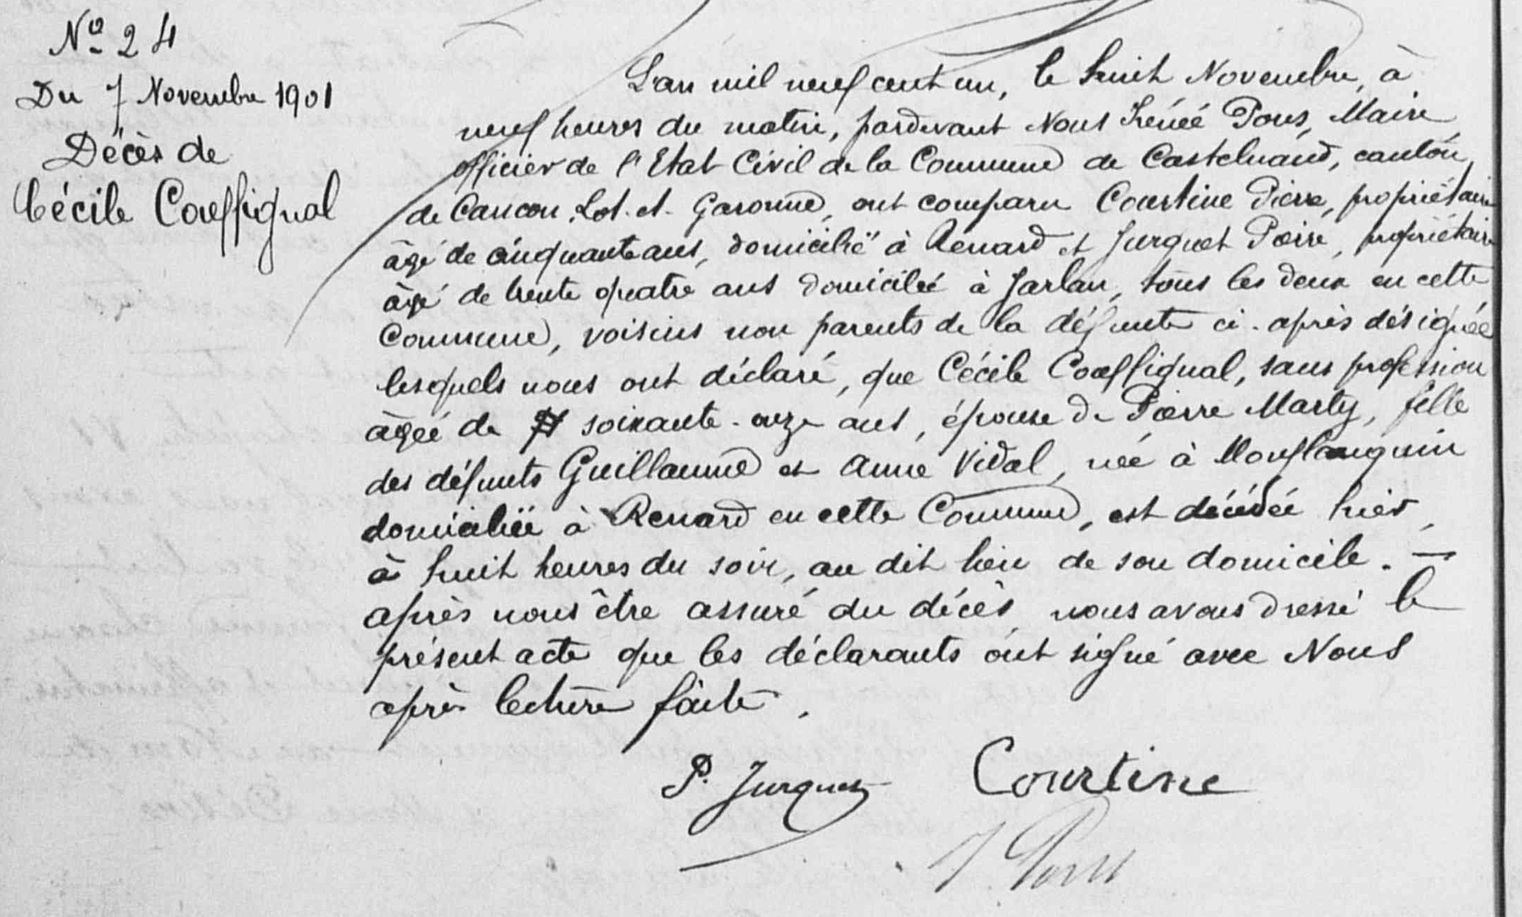 Nº 24
Du 7 Novembre 1901
Décès de
Cécile Coeffignal
L'an mil neuf cent un, le huit Novembre, à
neuf heures du matin, pardevant Nous Irénéé Pons, Maire,
officier de l'Etat Civil de la Commune de Castelnaud, canton
de Cancon, Lot-et-Garonne, ont comparu Courtine Pierre, propriétaire
âgé de cinquante ans, domicilié à Renard et Jurquet Pierre, propriétaire
âgé de trente quatre ans domicilié à Jarlan, tous les deux en cette
Commune, voisins non parents de la défunte ci-après désignée
lesquels nous ont déclaré, que Cécile Coeffignal, sans profession
âgée de soixante-onze ans, épouse de Pierre Marty, fille
des défunts Guillaume et Anne Vidal, née à Monflanquin
domiciliée à Renard en cette Commune, est décédée hier,
à huit heures du soir, au dit lieu de son domicile. —
après nous être assuré du décès, nous avons dressé le
présent acte que les déclarants ont signé avec Nous
après lecture faite.
P. Jurquet Courtine
I Pons